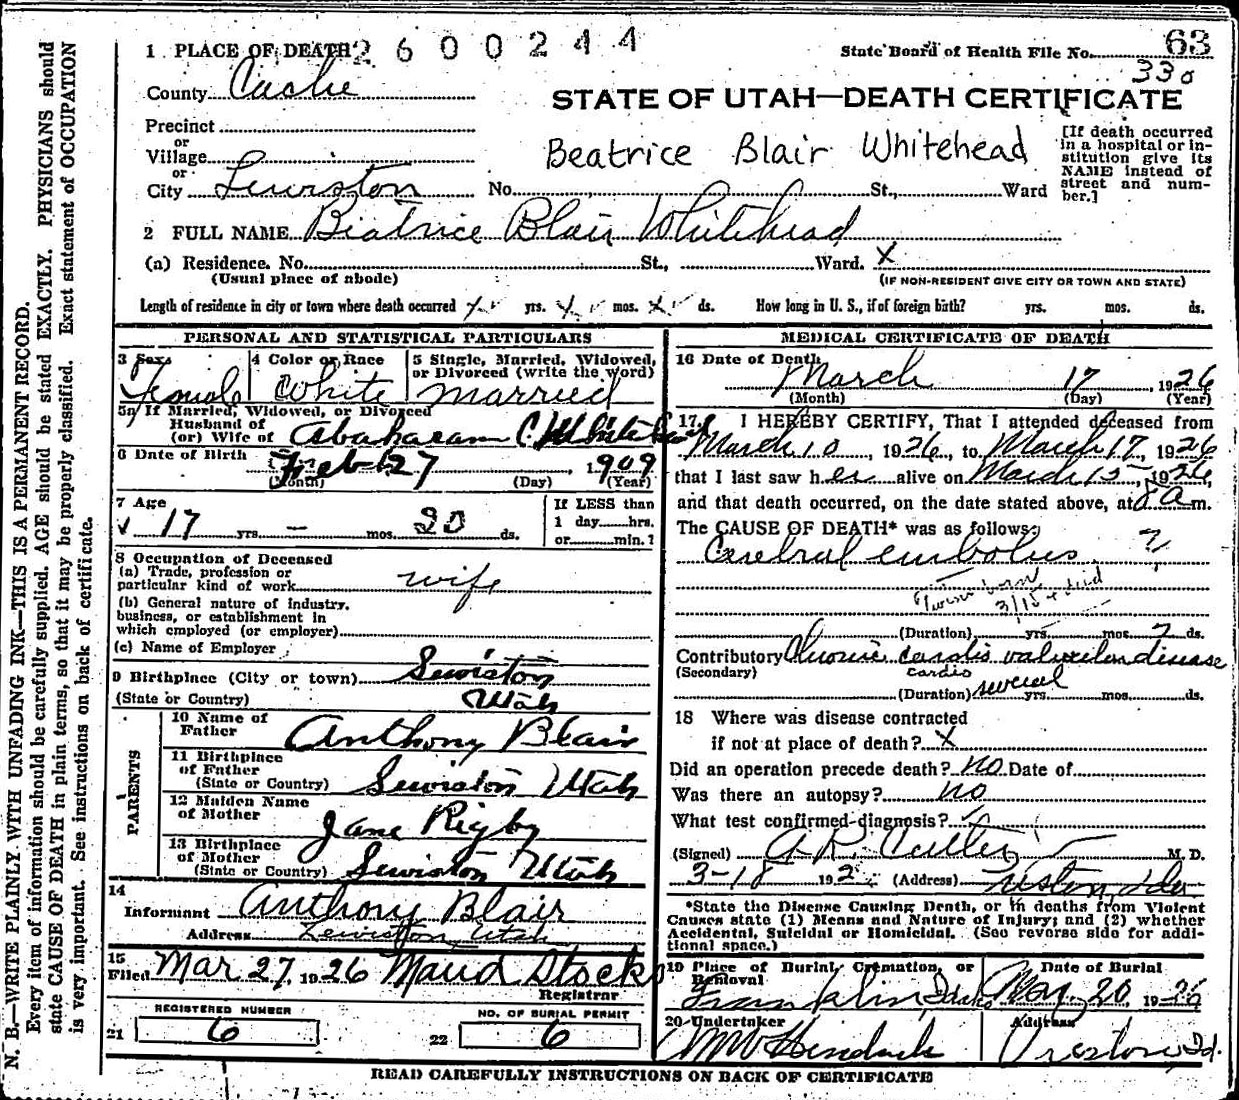 N. B.—WRITE PLAINLY WITH UNFADING INK—THIS IS A PERMANENT RECORD.
Every item of information should be carefully supplied. AGE should be stated EXACTLY. PHYSICIANS should
state CAUSE OF DEATH in plain terms, so that it may be properly classified. Exact statement of OCCUPATION
is very important. See instructions on back of certificate.
1 PLACE OF DEATH 2600244
State Board of Health File No. 63
330
County Cache
STATE OF UTAH—DEATH CERTIFICATE
Precinct
or
Village
or
City Lewiston No. St., Ward
Beatrice Blair Whitehead
[If death occurred
in a hospital or in-
stitution give its
NAME instead of
street and num-
ber.]
2 FULL NAME Biatrice Blair Whitehead
(a) Residence. No. St., Ward. X
(Usual place of abode) (IF NON-RESIDENT GIVE CITY OR TOWN AND STATE)
Length of residence in city or town where death occurred yrs. mos. ds. How long in U. S., if of foreign birth? yrs. mos. ds.
PERSONAL AND STATISTICAL PARTICULARS
3 Sex 4 Color or Race 5 Single, Married, Widowed,
or Divorced (write the word)
Female White married
5a If Married, Widowed, or Divorced
Husband of
(or) Wife of Abaharam C. Whitehead
6 Date of Birth Feb 27, 1909
(Month) (Day) (Year)
7 Age If LESS than
17 yrs. — mos. 20 ds. 1 day hrs.
or min.?
8 Occupation of Deceased
(a) Trade, profession or
particular kind of work wife
(b) General nature of industry,
business, or establishment in
which employed (or employer)
(c) Name of Employer
9 Birthplace (City or town) Lewiston
(State or Country) Utah
PARENTS
10 Name of
Father Anthony Blair
11 Birthplace
of Father
(State or Country) Lewiston Utah
12 Maiden Name
of Mother Jane Rigby
13 Birthplace
of Mother
(State or Country) Lewiston Utah
14
Informant Anthony Blair
Address Lewiston, Utah
15
Filed Mar 27, 1926 Maud Stocks
Registrar
REGISTERED NUMBER NO. OF BURIAL PERMIT
21 6 22 6
MEDICAL CERTIFICATE OF DEATH
16 Date of Death
March 17, 1926
(Month) (Day) (Year)
17. I HEREBY CERTIFY, That I attended deceased from
March 10, 1926, to March 17, 1926
that I last saw her alive on March 15, 1926,
and that death occurred, on the date stated above, at 8 a m.
The CAUSE OF DEATH* was as follows:
Cerebral embolus ?
Twins born
3/15 + died
(Duration) yrs. mos. 7 ds.
Contributory cardis valvular disease
(Secondary) cardis
(Duration) several yrs. mos. ds.
18 Where was disease contracted
if not at place of death? X
Did an operation precede death? no Date of
Was there an autopsy? no
What test confirmed diagnosis?
(Signed) A R. Cutler M. D.
3-18 192 (Address) Ida
*State the Disease Causing Death, or in deaths from Violent
Causes state (1) Means and Nature of Injury; and (2) whether
Accidental, Suicidal or Homicidal. (See reverse side for addi-
tional space.)
19 Place of Burial, Cremation, or Date of Burial
Removal
Franklin, Idaho Mar 20, 1926
20 Undertaker Address
Preston, Id.
READ CAREFULLY INSTRUCTIONS ON BACK OF CERTIFICATE